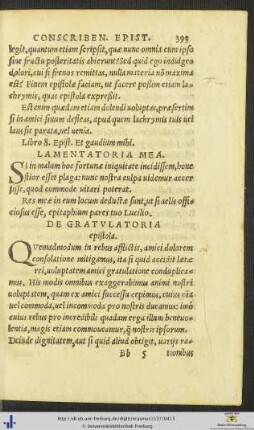 CONSCRIBEN. EPIST. 393
legit, quantum etiam scripsit, quæ nunc omnia cum ipso
sine fructu posteritatis abierunt? Sed quid ego indulgeo
dolori, cui si frenos remittas, nulla materia nō maxima
est? Finem epistolæ faciam, ut facere possim etiam la-
chrymis, quas epistola expressit.
Est enim quædam etiam dolendi uoluptas, præsertim
si in amici sinum defleas, apud quem lachrymis tuis uel
laus sit parata, uel uenia.
Libro 8. Epist. Et gaudium mihi.
LAMENTATORIA MEA.
Si in malum hoc fortunæ iniquitate incidissem, hone
stior esset plaga: nunc nostra culpa uidemur acces
sisse, quod commode uitari poterat.
Res meæ in eum locum deductæ sunt, ut si uelis offi
ciosus esse, epitaphium pares tuo Lucilio.
DE GRATVLATORIA
epistola.
Quemadmodum in rebus afflictis, amici dolorem
consolatione mitigamus, ita si quid accidit læta
rei, uoluptatem amici gratulatione conduplica-
mus. His modis omnibus exaggerabimus animi nostri
uoluptatem, quam ex amici successu cepimus, cuius
uel commoda, uel incommoda pro nostris ducamus: imò
euius rebus pro incredibili quadam erga illum beneuo-
lentia, magis etiam commoueamur, q̃ nostris ipsorum.
Deinde dignitatem, aut si quid aliud obtigit, uarijs ra-
Bb 5 tionibus
© Universitätsbibliothek Freiburg